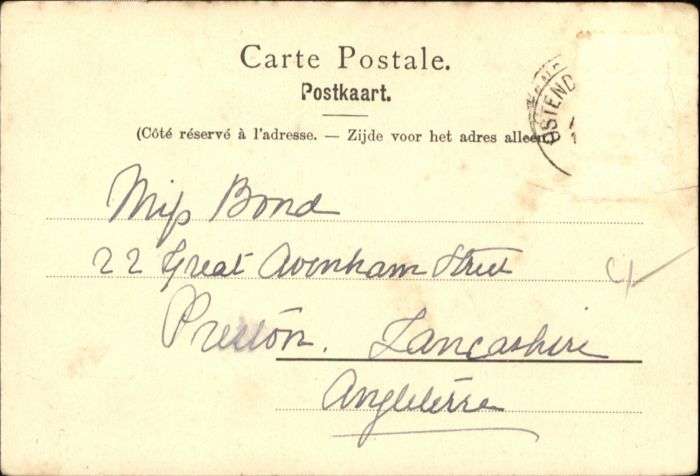 Carte Postale.
Postkaart.
(Côté réservé à l'adresse. — Zijde voor het adres alleen)
OSTEND
Miss Bond
22 Great Avenham Street
Preston. Lancashire
Angleterre